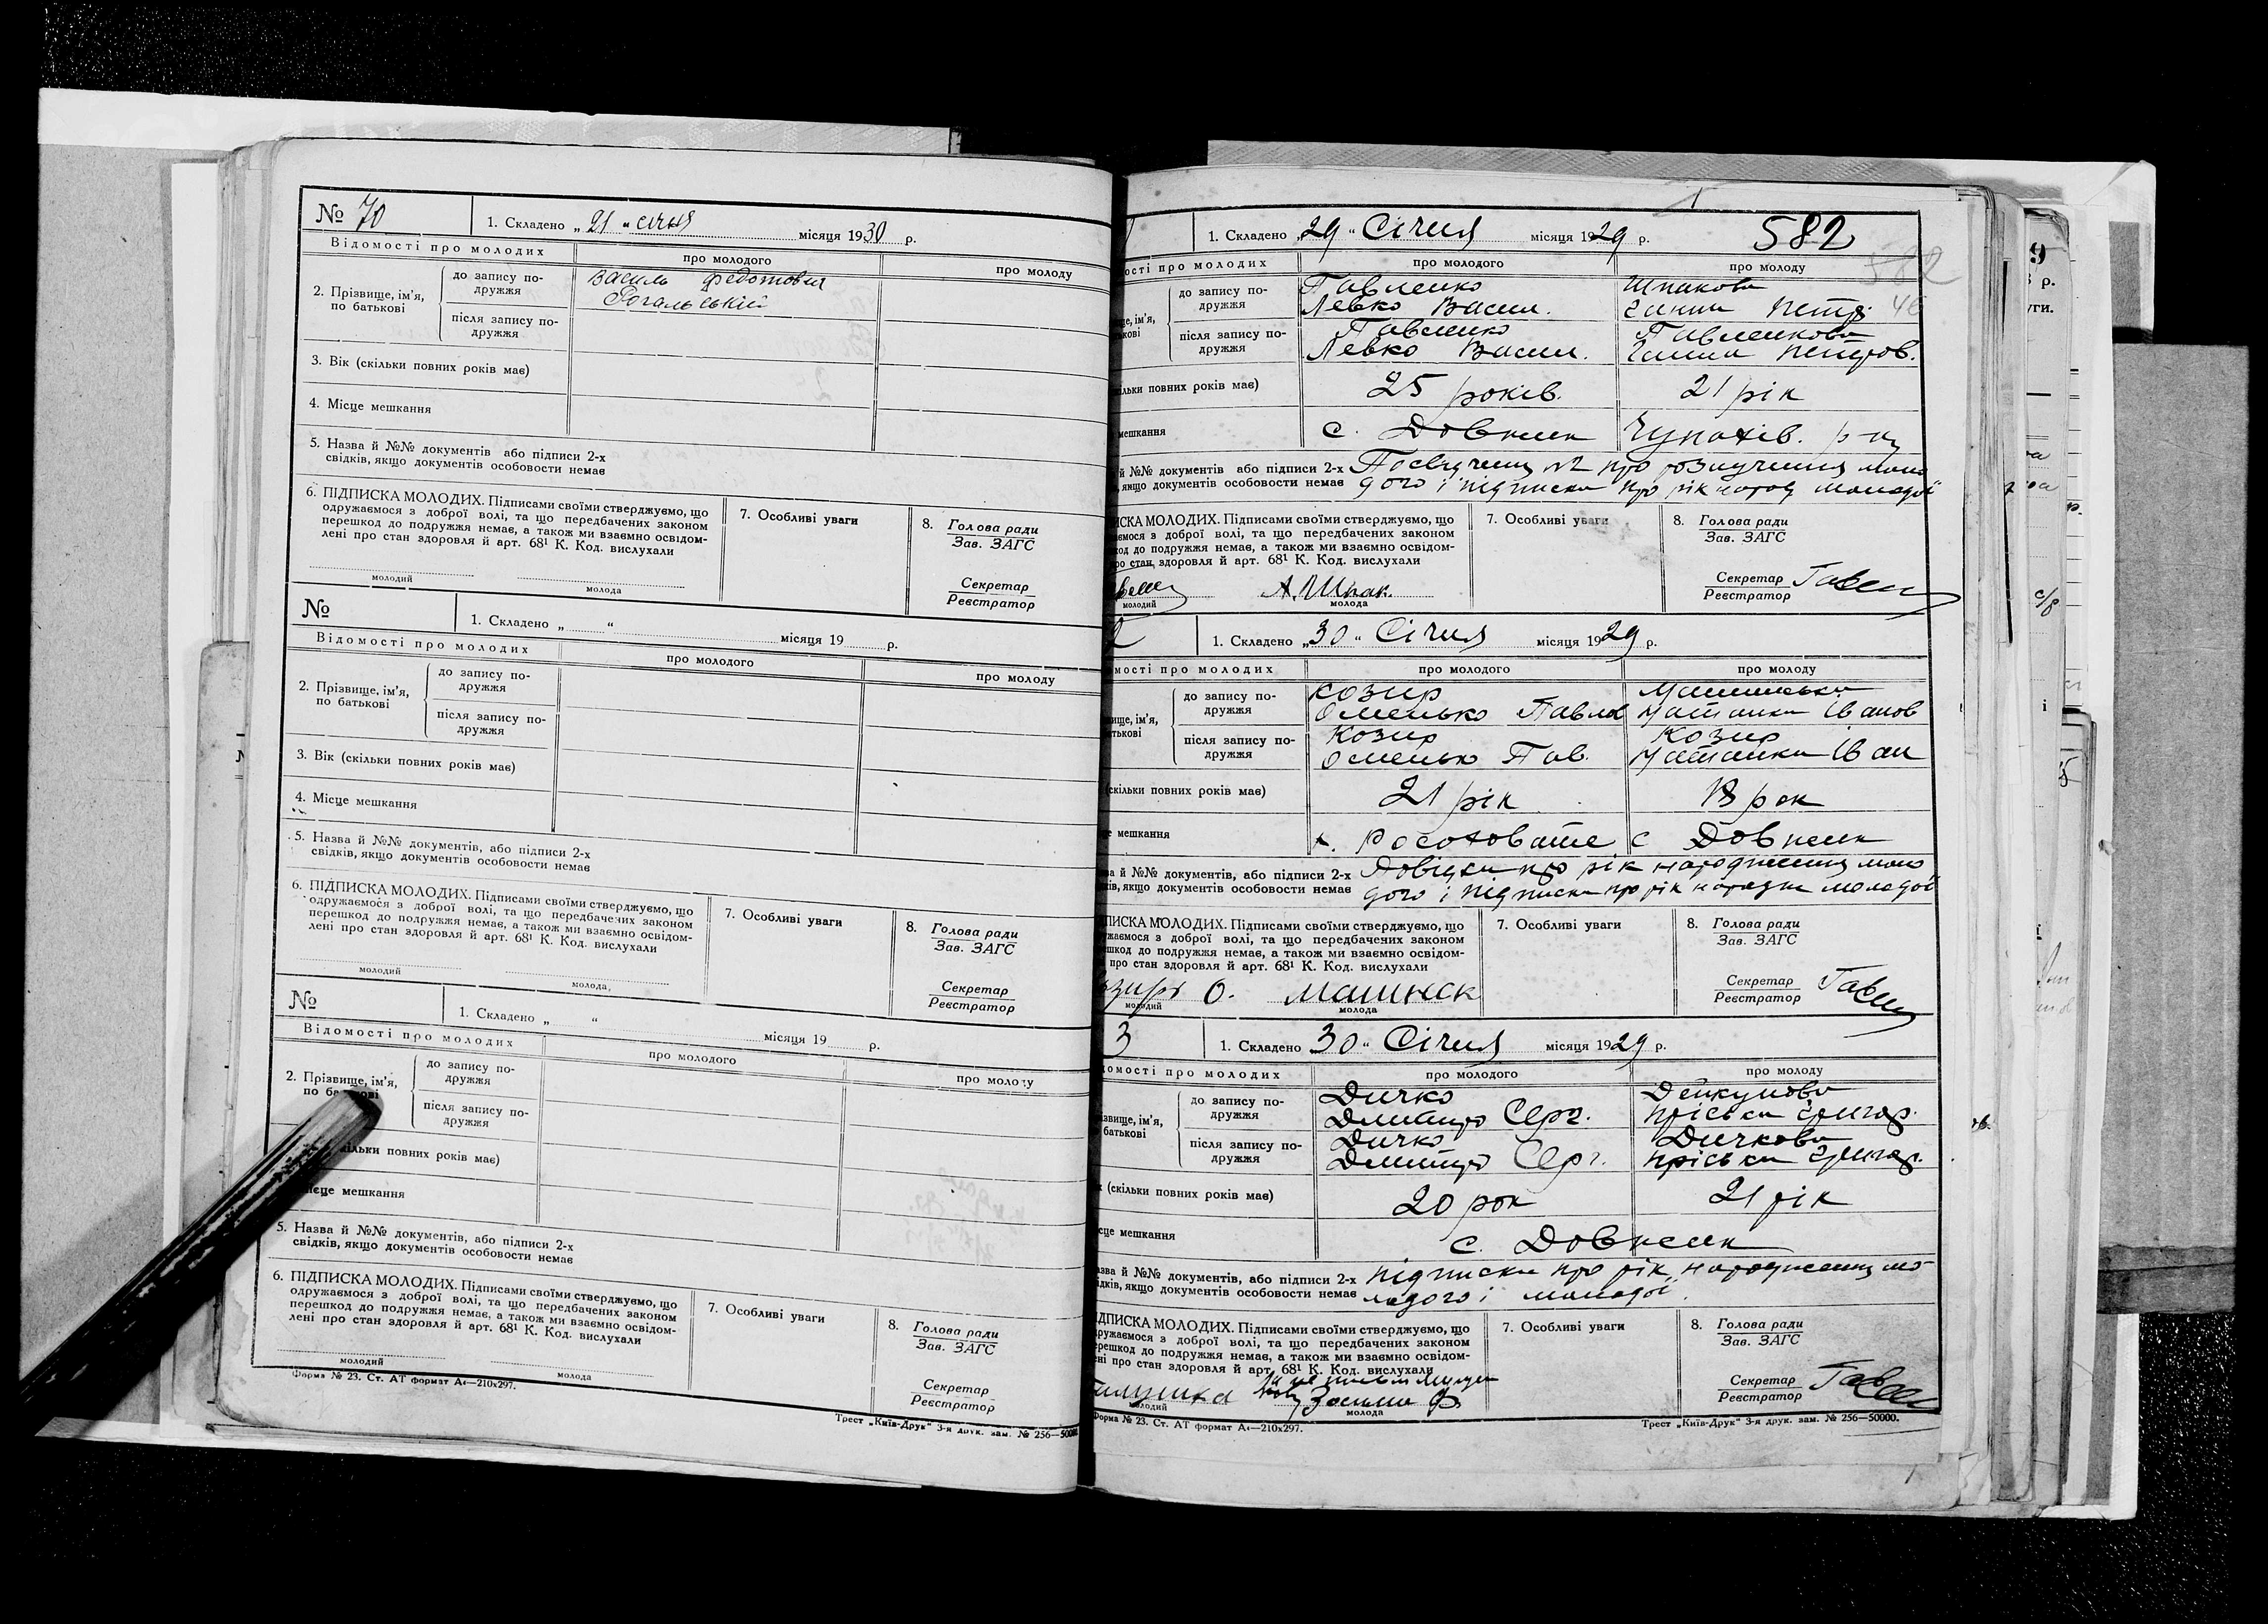 № 70
1. Складено „ 21 “ січня місяця 1930 р.
Відомості про молодих
про молодого
про молоду
2. Прізвище, ім'я, по батькові
до запису по-
дружжя
Василь Федотович
Рогальський
після запису по-
дружжя
3. Вік (скільки повних років має)
4. Місце мешкання
5. Назва й №№ документів або підписи 2-х
свідків, якщо документів особовости немає
6. ПІДПИСКА МОЛОДИХ. Підписами своїми стверджуємо, що
одружаємося з доброї волі, та що передбачених законом
перешкод до подружжя немає, а також ми взаємно освідом-
лені про стан здоровля й арт. 68¹ К. Код. вислухали
молодий
молода
7. Особливі уваги
8. Голова ради
Зав. ЗАГС
Секретар
Реєстратор
№
1. Складено „ “ місяця 19 р.
Відомості про молодих
про молодого
про молоду
2. Прізвище, ім'я,
по батькові
до запису по-
дружжя
після запису по-
дружжя
3. Вік (скільки повних років має)
4. Місце мешкання
5. Назва й №№ документів, або підписи 2-х
свідків, якщо документів особовости немає
6. ПІДПИСКА МОЛОДИХ. Підписами своїми стверджуємо, що
одружаємося з доброї волі, та що передбачених законом
перешкод до подружжя немає, а також ми взаємно освідом-
лені про стан здоровля й арт. 68¹ К. Код. вислухали
молодий
молода
7. Особливі уваги
8. Голова ради
Зав. ЗАГС
Секретар
Реєстратор
№
1. Складено „ “ місяця 19 р.
Відомості про молодих
про молодого
про молоду
2. Прізвище, ім'я,
по
до запису по-
дружжя
після запису по-
дружжя
повних років має)
мешкання
5. Назва й №№ документів, або підписи 2-х
свідків, якщо документів особовости немає
6. ПІДПИСКА МОЛОДИХ. Підписами своїми стверджуємо, що
одружаємося з доброї волі, та що передбачених законом
перешкод до подружжя немає, а також ми взаємно освідом-
лені про стан здоровля й арт. 68¹ К. Код. вислухали
молодий
молода
7. Особливі уваги
8. Голова ради
Зав. ЗАГС
Секретар
Реєстратор
Форма № 23. Ст. АТ формат А4—210х297.
Трест „Київ-Друк“ 3-я друк. зам. № 256—50000
1. Складено „29“ Січня місяця 1929 р.
582
про молодих
про молодого
про молоду
до запису по-
дружжя
Павленко
Левко Васил.
Шпакова
Ганна Петр.
після запису по-
дружжя
Павленко
Левко Васил.
Павленкова
Ганна Петров.
повних років має)
25 років.
21 рік
мешкання
с. Довжик
Чупахів. р-ну
й №№ документів або підписи 2-х
якщо документів особовости немає
Посвідчення №2 про розлучення моло
дого і підписка про рік народ молодої
МОЛОДИХ. Підписами своїми стверджуємо, що
з доброї волі, та що передбачених законом
до подружжя немає, а також ми взаємно освідом-
про стан здоровля й арт. 68¹ К. Код. вислухали
А. Шпак.
молодий
молода
7. Особливі уваги
8. Голова ради
Зав. ЗАГС
Секретар
Реєстратор
2
1. Складено „30“ Січня місяця 1929 р.
про молодих
про молодого
про молоду
до запису по-
дружжя
Козир
Омелько Павло
Наталка Іванов
після запису по-
дружжя
Козир
Омелько Пав.
Козир
Наталка Іван
(скільки повних років має)
21 рік
18 рок
мешкання
х. Росоховате
с Довжик
№№ документів, або підписи 2-х
якщо документів особовости немає
Довідка про рік народження моло
дого і підписка про рік народж молодої
МОЛОДИХ. Підписами своїми стверджуємо, що
з доброї волі, та що передбачених законом
до подружжя немає, а також ми взаємно освідом-
про стан здоровля й арт. 68¹ К. Код. вислухали
О. Машнск
молодий
молода
7. Особливі уваги
8. Голова ради
Зав. ЗАГС
Секретар
Реєстратор
3
1. Складено 30 “ Січня місяця 1929 р.
про молодих
про молодого
про молоду
до запису по-
дружжя
Дичко
Дмитро Серг.
Дейкунова
Пріська Григор.
після запису по-
дружжя
Дичко
Дмитро Серг.
Дичкова
Пріська Григор.
(скільки повних років має)
20 рок
21 рік
мешкання
с. Довжик
№№ документів, або підписи 2-х
якщо документів особовости немає
Підписки про рік народження мо-
лодого і молодої.
ПІДПИСКА МОЛОДИХ. Підписами своїми стверджуємо, що
з доброї волі, та що передбачених законом
до подружжя немає, а також ми взаємно освідом-
про стан здоровля й арт. 68¹ К. Код. вислухали
молодий
молода
7. Особливі уваги
8. Голова ради
Зав. ЗАГС
Секретар
Реєстратор
Форма № 23. Ст. АТ формат А4—210х297.
Трест „Київ-Друк“ 3-я друк. зам. № 256—50000.